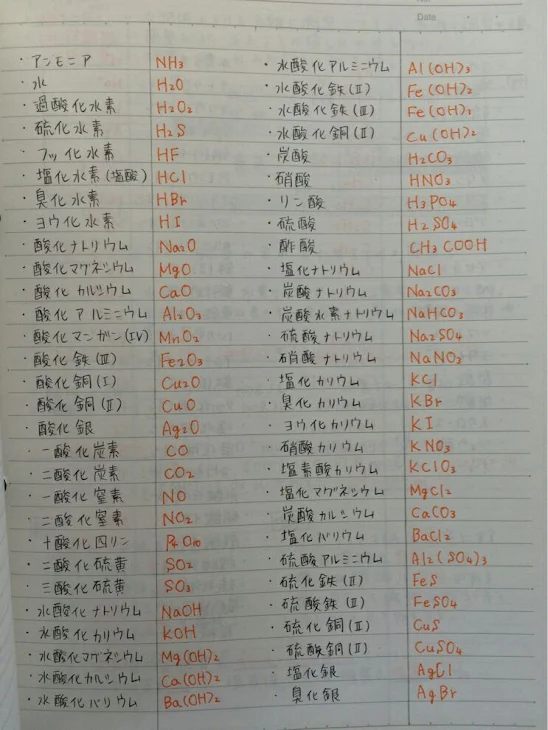 Date
・アンモニア NH₃
・水 H₂O
・過酸化水素 H₂O₂
・硫化水素 H₂S
・フッ化水素 HF
・塩化水素(塩酸) HCl
・臭化水素 HBr
・ヨウ化水素 HI
・酸化ナトリウム Na₂O
・酸化マグネシウム MgO
・酸化カルシウム CaO
・酸化アルミニウム Al₂O₃
・酸化マンガン(IV) MnO₂
・酸化鉄(Ⅲ) Fe₂O₃
・酸化銅(Ⅰ) Cu₂O
・酸化銅(Ⅱ) CuO
・酸化銀 Ag₂O
・一酸化炭素 CO
・二酸化炭素 CO₂
・一酸化窒素 NO
・二酸化窒素 NO₂
・十酸化四リン P₄O₁₀
・二酸化硫黄 SO₂
・三酸化硫黄 SO₃
・水酸化ナトリウム NaOH
・水酸化カリウム KOH
・水酸化マグネシウム Mg(OH)₂
・水酸化カルシウム Ca(OH)₂
・水酸化バリウム Ba(OH)₂
・水酸化アルミニウム Al(OH)₃
・水酸化鉄(Ⅱ) Fe(OH)₂
・水酸化鉄(Ⅲ) Fe(OH)₃
・水酸化銅(Ⅱ) Cu(OH)₂
・炭酸 H₂CO₃
・硝酸 HNO₃
・リン酸 H₃PO₄
・硫酸 H₂SO₄
・酢酸 CH₃COOH
・塩化ナトリウム NaCl
・炭酸ナトリウム Na₂CO₃
・炭酸水素ナトリウム NaHCO₃
・硫酸ナトリウム Na₂SO₄
・硝酸ナトリウム NaNO₃
・塩化カリウム KCl
・臭化カリウム KBr
・ヨウ化カリウム KI
・硝酸カリウム KNO₃
・塩素酸カリウム KClO₃
・塩化マグネシウム MgCl₂
・炭酸カルシウム CaCO₃
・塩化バリウム BaCl₂
・硫酸アルミニウム Al₂(SO₄)₃
・硫化鉄(Ⅱ) FeS
・硫酸鉄(Ⅱ) FeSO₄
・硫化銅(Ⅱ) CuS
・硫酸銅(Ⅱ) CuSO₄
・塩化銀 AgCl
・臭化銀 AgBr